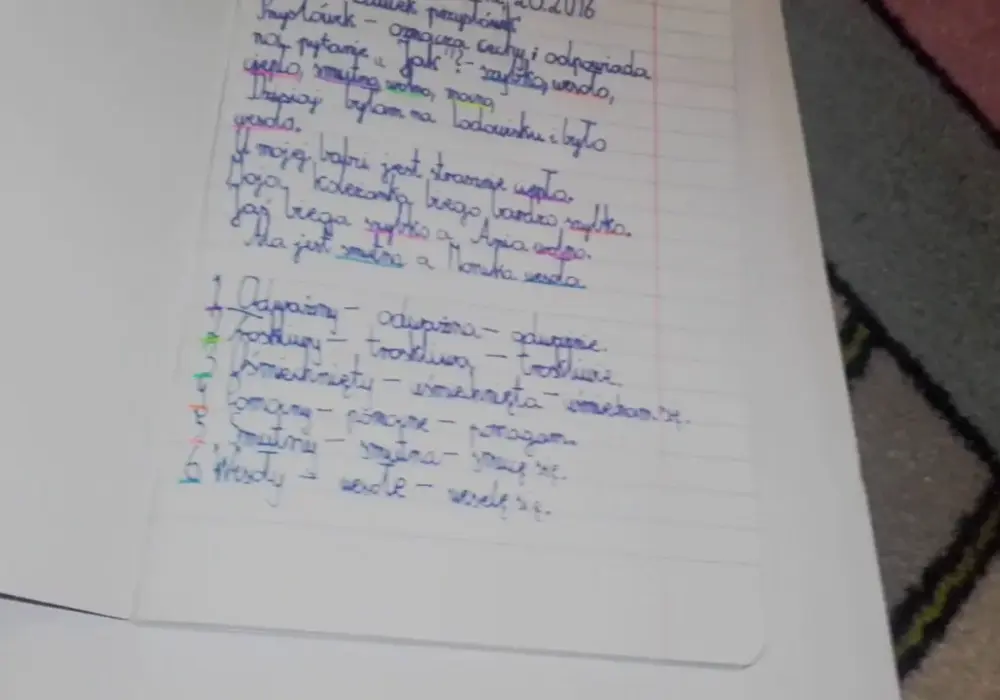 2016
Przysłówek – oznacza cechy i odpowiada
na pytanie "Jak"? – szybko, wesoło,
ciepło, smutno, wolno, mocno,
Dzisiaj byłam na lodowisku i było
wesoło.
U mojej babci jest strasznie ciepło.
Moja koleżanka biega bardzo szybko.
Jaś biega szybko a Ania wolno.
Ala jest smutna a Monika wesoła
1. Odważny – odważna – odważnie.
2 Troskliwy – troskliwa – troskliwie.
3 Uśmiechnięty – uśmiechnięta – uśmiecham się.
4 Pomocny – pomocne – pomagam.
5, Smutny – smutna – smucę się.
6 Wesoły – wesołe – weselę się.